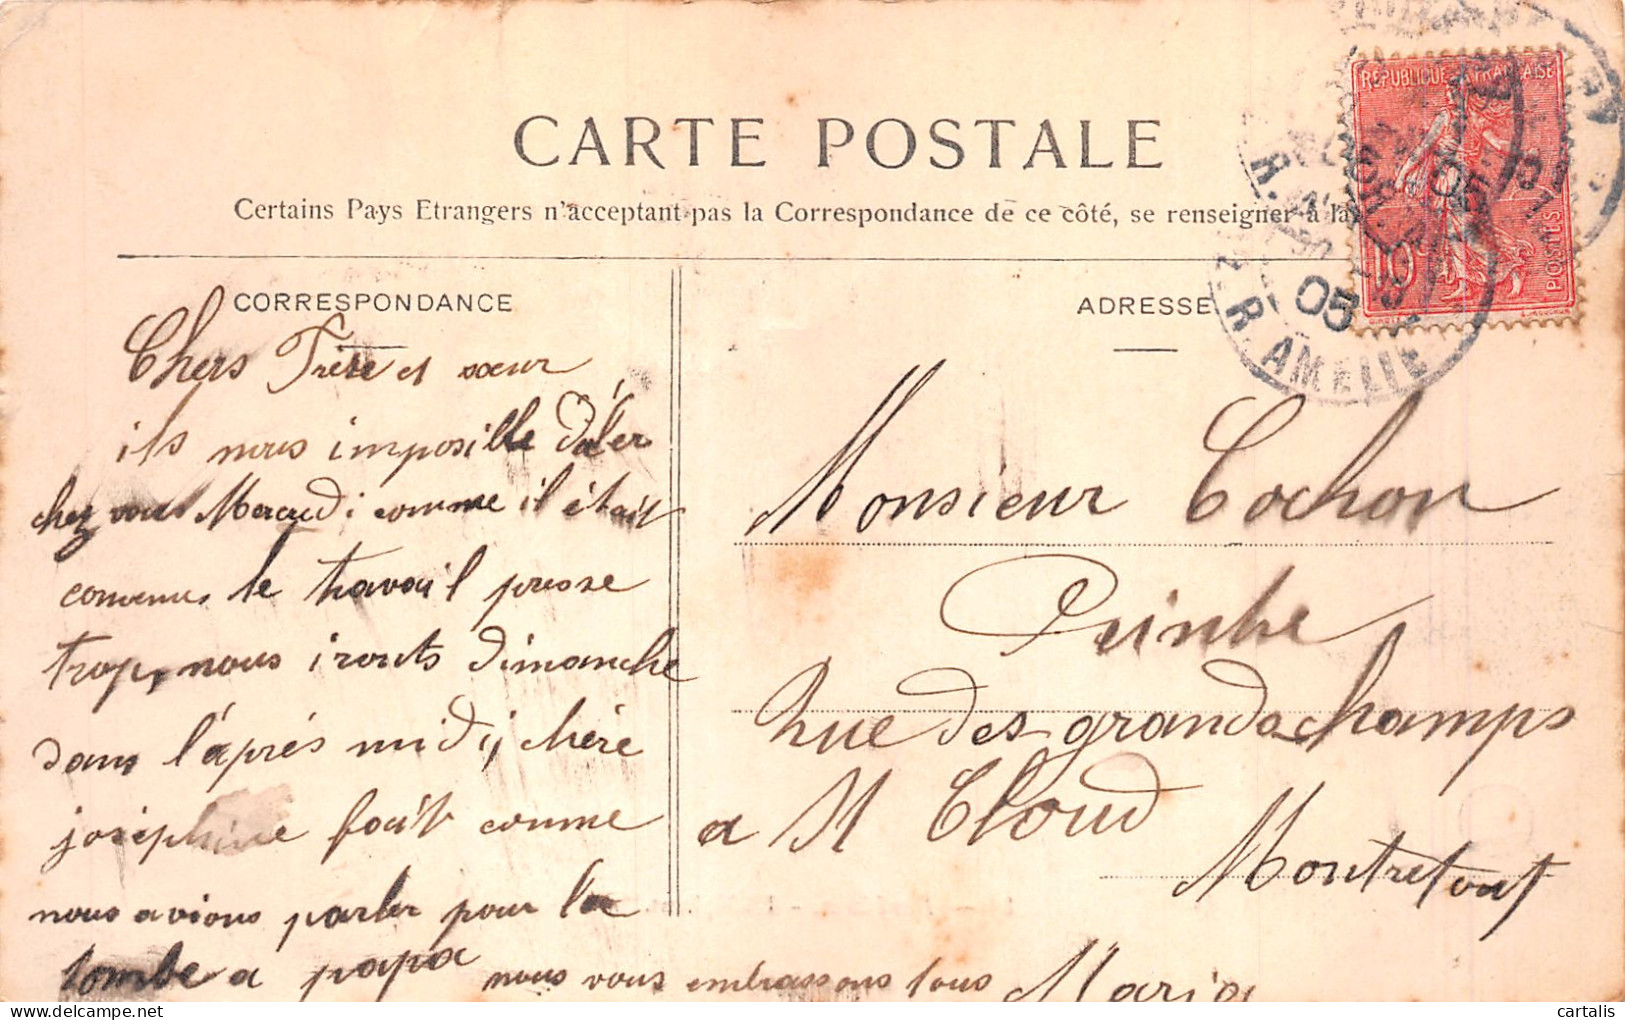 CARTE POSTALE
Certains Pays Etrangers n'acceptent pas la Correspondance de ce côté, se renseigner à la
CORRESPONDANCE
Chers Frère et sœur
ils nous imposille d'aler
chez vous Mercredi comme il était
convenus le travail presse
trop, nous irouts dimanche
dans l'áprés midi, chére
joséphine fait comme
nous avions parler pour la
tombe a papa nous vous embrassons tous Maria
ADRESSE
Monsieur Cochon
Peintre
Rue des grands champs
a St Cloud
Montretout
REPUBLIQUE FRANÇAISE
10c
POSTES
05
R. AMELIE
cartalis